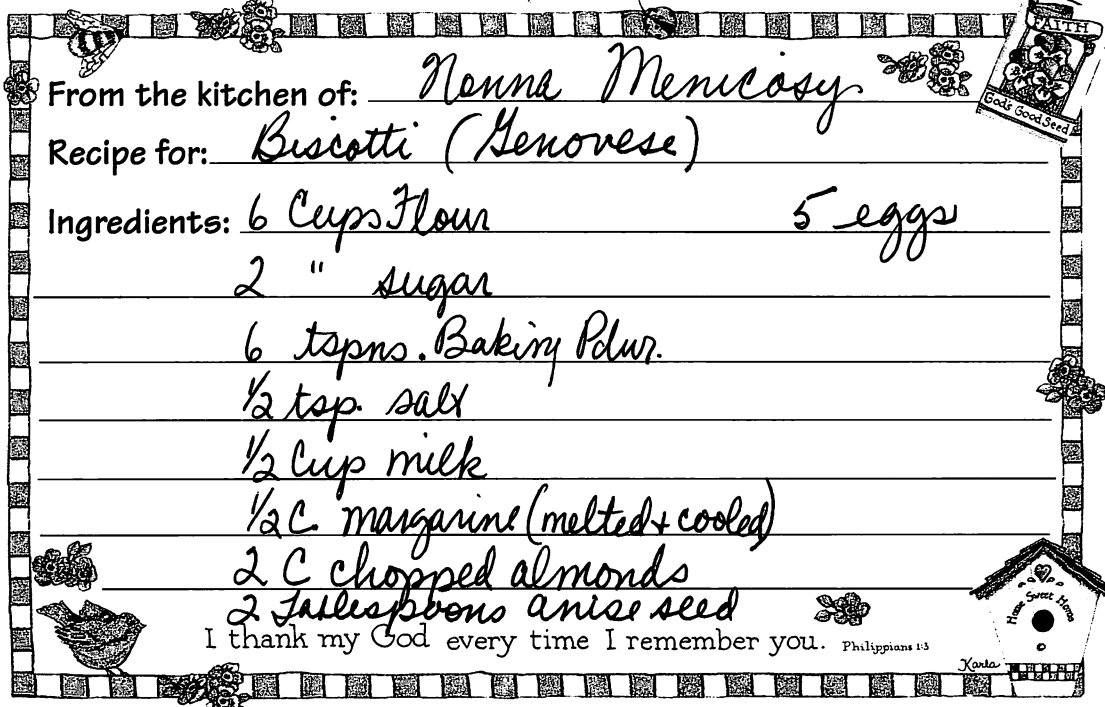 FAITH
God's Good Seed
From the kitchen of: Nonna Menicosy
Recipe for: Biscotti (Genovese)
Ingredients: 6 Cups Flour 5 eggs
2 " sugar
6 tspns. Baking Pdwr.
1/2 tsp. salt
1/2 Cup milk
1/2 C. margarine (melted + cooled)
2 C chopped almonds
2 Tablespoons anise seed
I thank my God every time I remember you. Philippians 1:3
Home Sweet Home
Karla